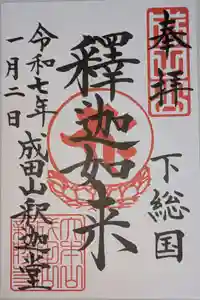 奉拝
下総国
釋迦如来
令和七年
一月二日
成田山釈迦堂